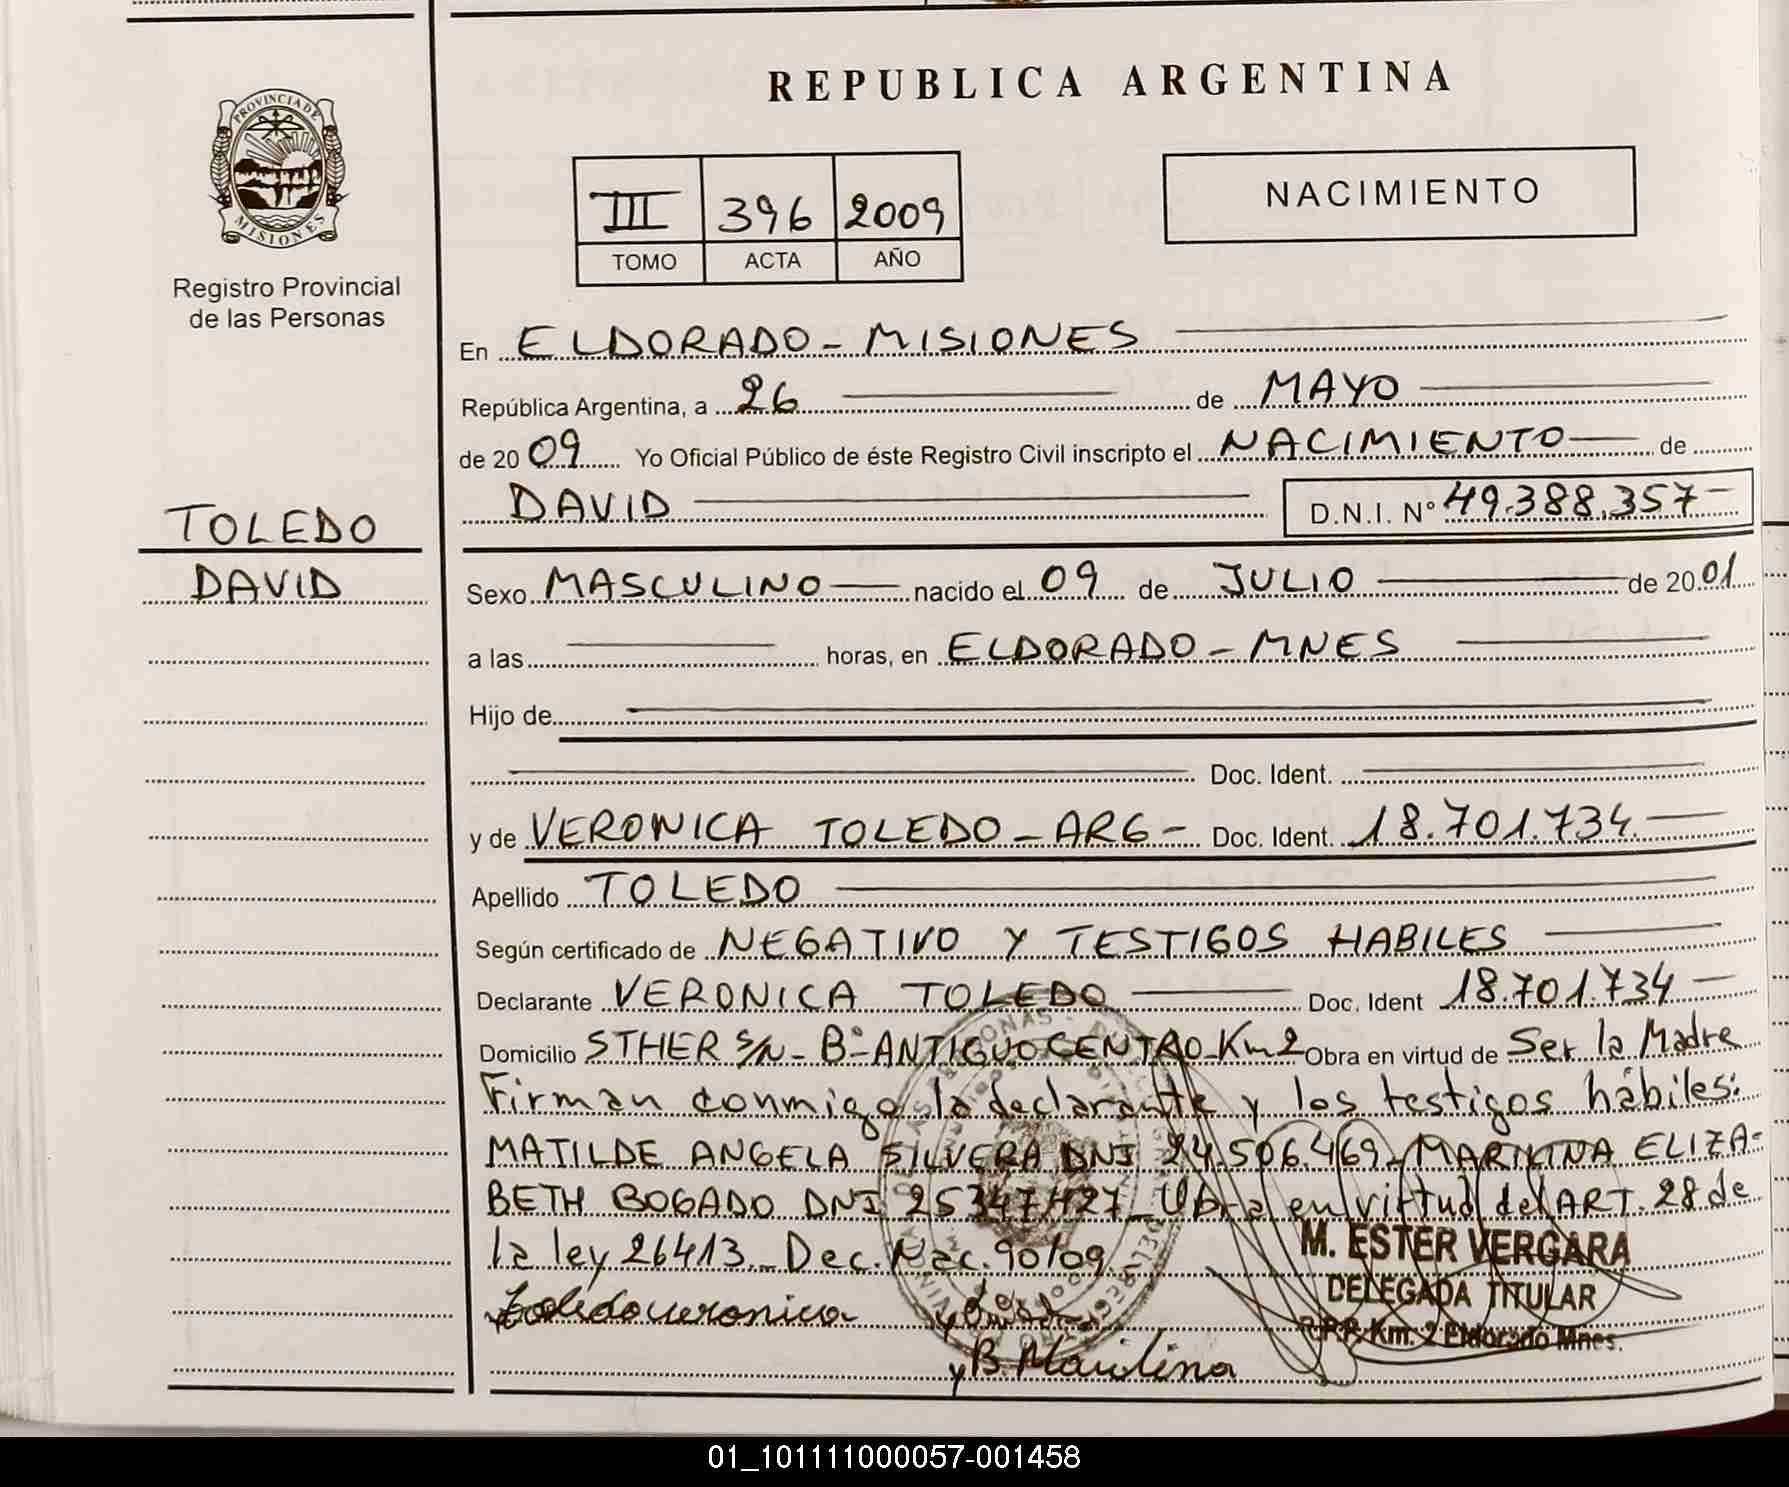 REPUBLICA ARGENTINA
PROVINCIA DE
MISIONES
Registro Provincial
de las Personas
III 396 2009
TOMO ACTA AÑO
NACIMIENTO
En ELDORADO - MISIONES
República Argentina, a 26 de MAYO
de 2009 Yo Oficial Público de éste Registro Civil inscripto el NACIMIENTO de
DAVID D.N.I. Nº 49.388.357
TOLEDO
DAVID
Sexo MASCULINO nacido el 09 de JULIO de 2001
a las horas, en ELDORADO - MNES
Hijo de
Doc. Ident.
y de VERONICA TOLEDO - ARG - Doc. Ident. 18.701.734
Apellido TOLEDO
Según certificado de NEGATIVO Y TESTIGOS HABILES
Declarante VERONICA TOLEDO Doc. Ident 18.701.734
Domicilio STHER S/N - Bº ANTIGUO CENTRO - Km 2 Obra en virtud de Ser la Madre
Firman conmigo la declarante y los testigos hábiles:
MATILDE ANGELA SILVERA DNI 24.506.469 - MARILINA ELIZA-
BETH BOGADO DNI 25347427 - en virtud del ART. 28 de
la ley 26413 - Dec. Nac. 90/09 -
Toledo veronica
B. Marilina
M. ESTER VERGARA
DELEGADA TITULAR
R.P.P. Km. 2 Eldorado Mnes.
01_101111000057-001458